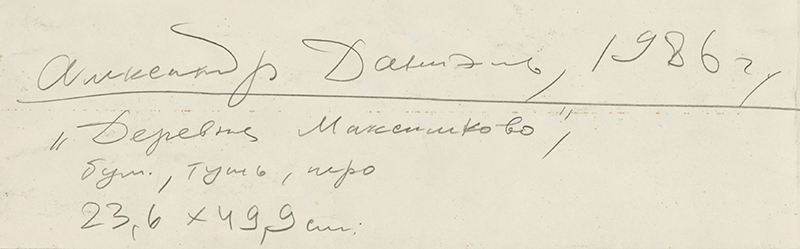 Александр Даниэль, 1986 г,
„Деревня Максимково",
бум., тушь, перо
23,6 x 49,9 см.